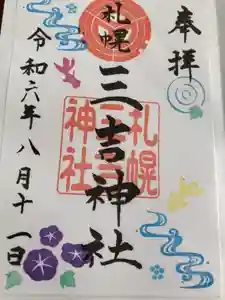 奉拝
札幌
三吉神社
札幌
三吉
神社
令和六年八月十一日